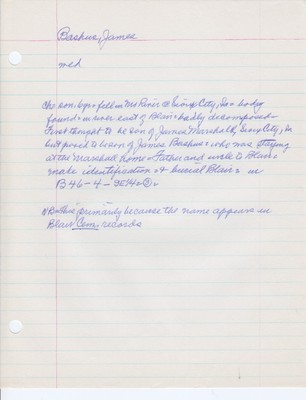 Backus, James
med
his son 6 yrs fell in Mo River @ Sioux City, Ia & body
found in river east of Blair badly decomposed
First thought to be son of James Marshall, Sioux City, Ia
but proved to be son of James Backus who was staying
at the Marshall home Father and uncle to Blair
make identification & burial Blair in
B46-4-9E14
primarily because the name appears in
Blair Cem. records